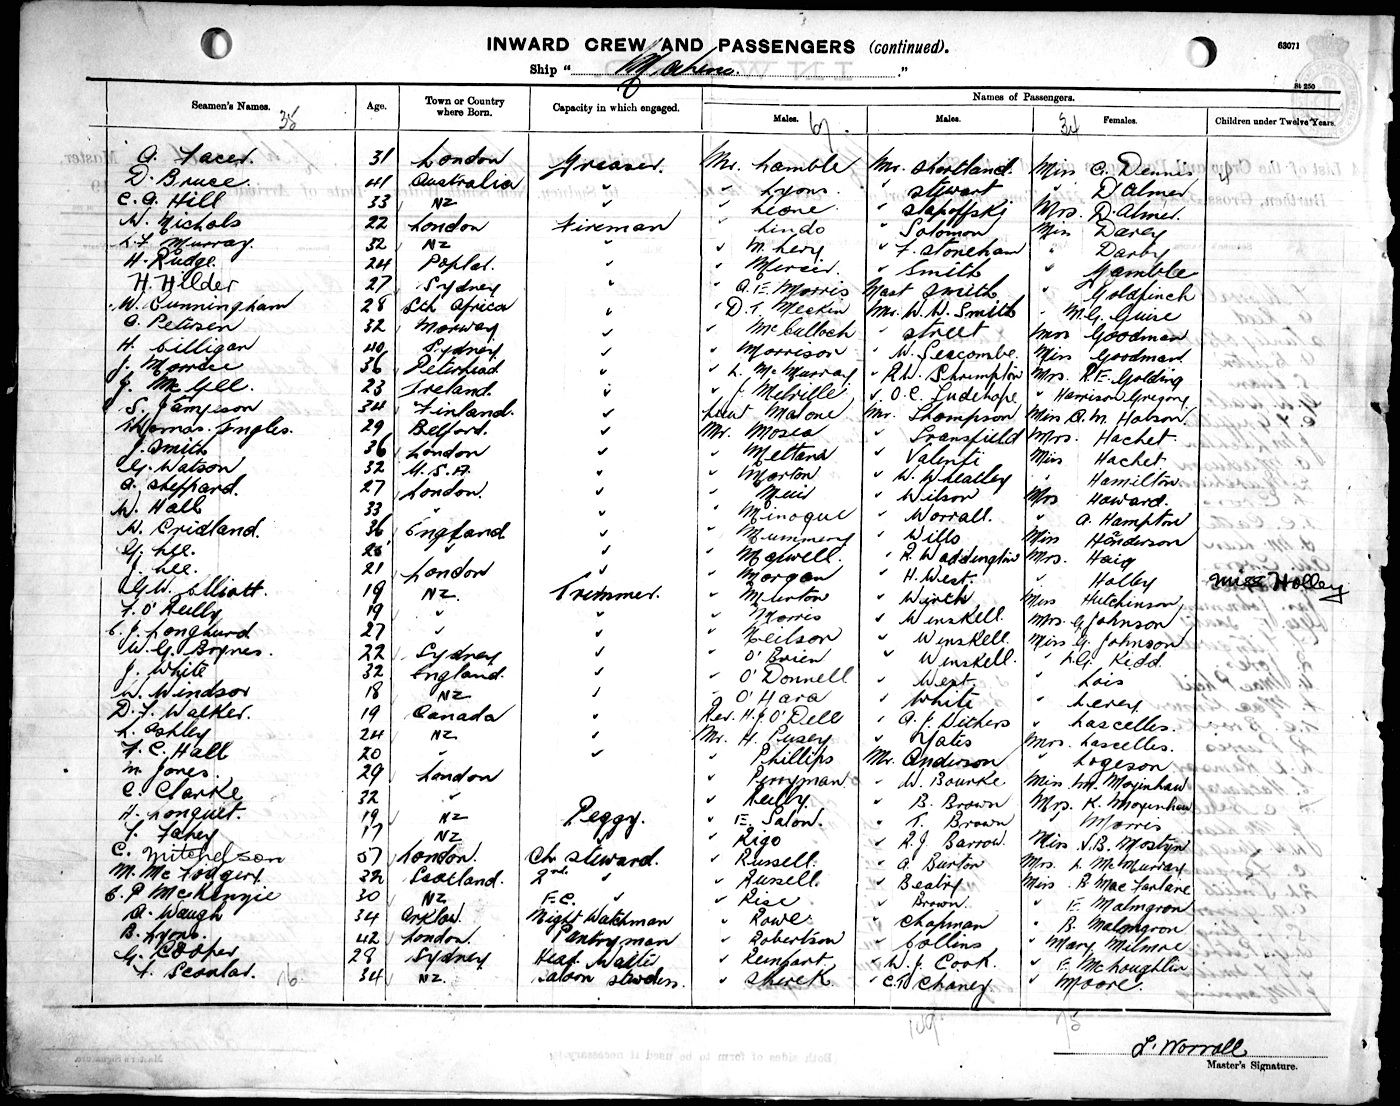 INWARD CREW AND PASSENGERS (continued).
63071
Ship "Maheno."
St 250
Seamen's Names. Age. Town or Country where Born. Capacity in which engaged. Names of Passengers.
Males. 67. Males. 34 Females. Children under Twelve Years.
38
31 London Greaser. Mr. Gamble Mr. Shortland. Miss C. Dennis
D. Bruce 41 Australia " " Lyons. " Stewart " D'Almer
C. A. Hill 33 NZ " " Leone " Stapoffski Mrs. D'Almer.
W. Nichols 22 London Fireman " Lindo " Solomon Miss Darcy
L. F. Murray. 32 NZ " " M. Levy " F. Stoneham " Darby
H. Rudge. 24 Poplar. " " Mercer. " Smith " Gamble
H. Hilder 27 Sydney " " A. E. Morris Mast Smith " Goldfinch
W. Cunningham 28 Sth Africa " " D. T. Meekin Mr. W. W. Smith " M. G. Guise
A. Petersen 32 Norway " " McCulloch " Street Mrs Goodman
H. Gilligan 40 Sydney " " Morrison " W. Seacombe. Miss Goodman.
J. 36 Peterhead " " L. McMurray " R. W. Shrimpton Mrs. R. E. Golding
J. McGell. 23 Ireland. " " J. Melville " O. C. " Harrison Gregory
S. Jampson 34 Finland. " Lieut Malone Mr. Thompson Miss A. M. Hobson
Thomas Ingles. 29 Belford. " Mr. Mosea " Transfield Mrs. Hachet.
J. Smith 36 London " " " Valenti Miss Hachet.
G. Watson 32 U.S.A. " " Morton " W. Whalley " Hamilton
A. Sheppard. 27 London. " " Muir " Wilson Mrs Howard.
W. Hall 33 " " " Minogue " Worrall. " A. Hampton
W. Cridland. 36 England " " Mummery " Wills Miss Henderson
G. Lee. " " " Maxwell. " R. Waddington Mrs. Haig
J. Lee. 21 London " " Morgan " H. West. " Holley Miss Holley
G. W. Elliott. 19 NZ. Trimmer. " Murton " Wirth Miss Hutchinson
F. O'Reilly 19 " " " Morris " Winskell. Mrs. G. Johnson
C. J. Longhurd 27 " " " Neilson " Winskell. Miss G. Johnson
W. G. Byrnes. 22 Sydney " " O'Brien " Winskell. " L. G. Kidd.
J. White 32 England. " " O'Donnell " West. " Lois
W. Windsor 18 NZ " " O'Hara " White " Levey
D. F. Walker. 19 Canada " Rev. H. J. O'Dell " A. J. Withers " Lascelles.
L. Ashley 24 NZ. " Mr. H. Pusey " Yates Mrs. Lascelles.
F. C. Hall 20 " " " Phillips Mr. Anderson " Logeson
M. Jones. 29 London " Perryman " W. Bourke Miss M. Moynihan
C. Clarke 32 " " Reilly. " B. Brown Mrs. K. Moynihan
H. Longuet. 19 NZ Peggy. " E. Salon. " T. Brown " Morris
F. Fahey 17 NZ " Rigo " R. J. Barrow. Miss V. B. Mostyn
C. Mitchelson 57 London. Ch. Steward. " Russell. " A. Burton Mrs. L. McMurray
M. 32 Scotland. 2nd. " " Russell. " Beatty Miss B. MacFarlane
C. P. McKenzie 30 NZ F.C. " " Rise " Brown. " E. Malmgron
A. Waugh 34 Arklow. Night Watchman " Rowe. " Chapman " B. Malmgron
B. Lyons. 42 London. Pantryman " Robertson " Collins " Mary Milmoe
G. Cooper 28 Sydney Head Waiter " Reinhart. " W. J. Cook. " E. McLoughlin
F. Scoular. 34 NZ. Saloon Stewdess. " Sherek " C. D. Chaney " Moore.
L. Worrall
Master's Signature.